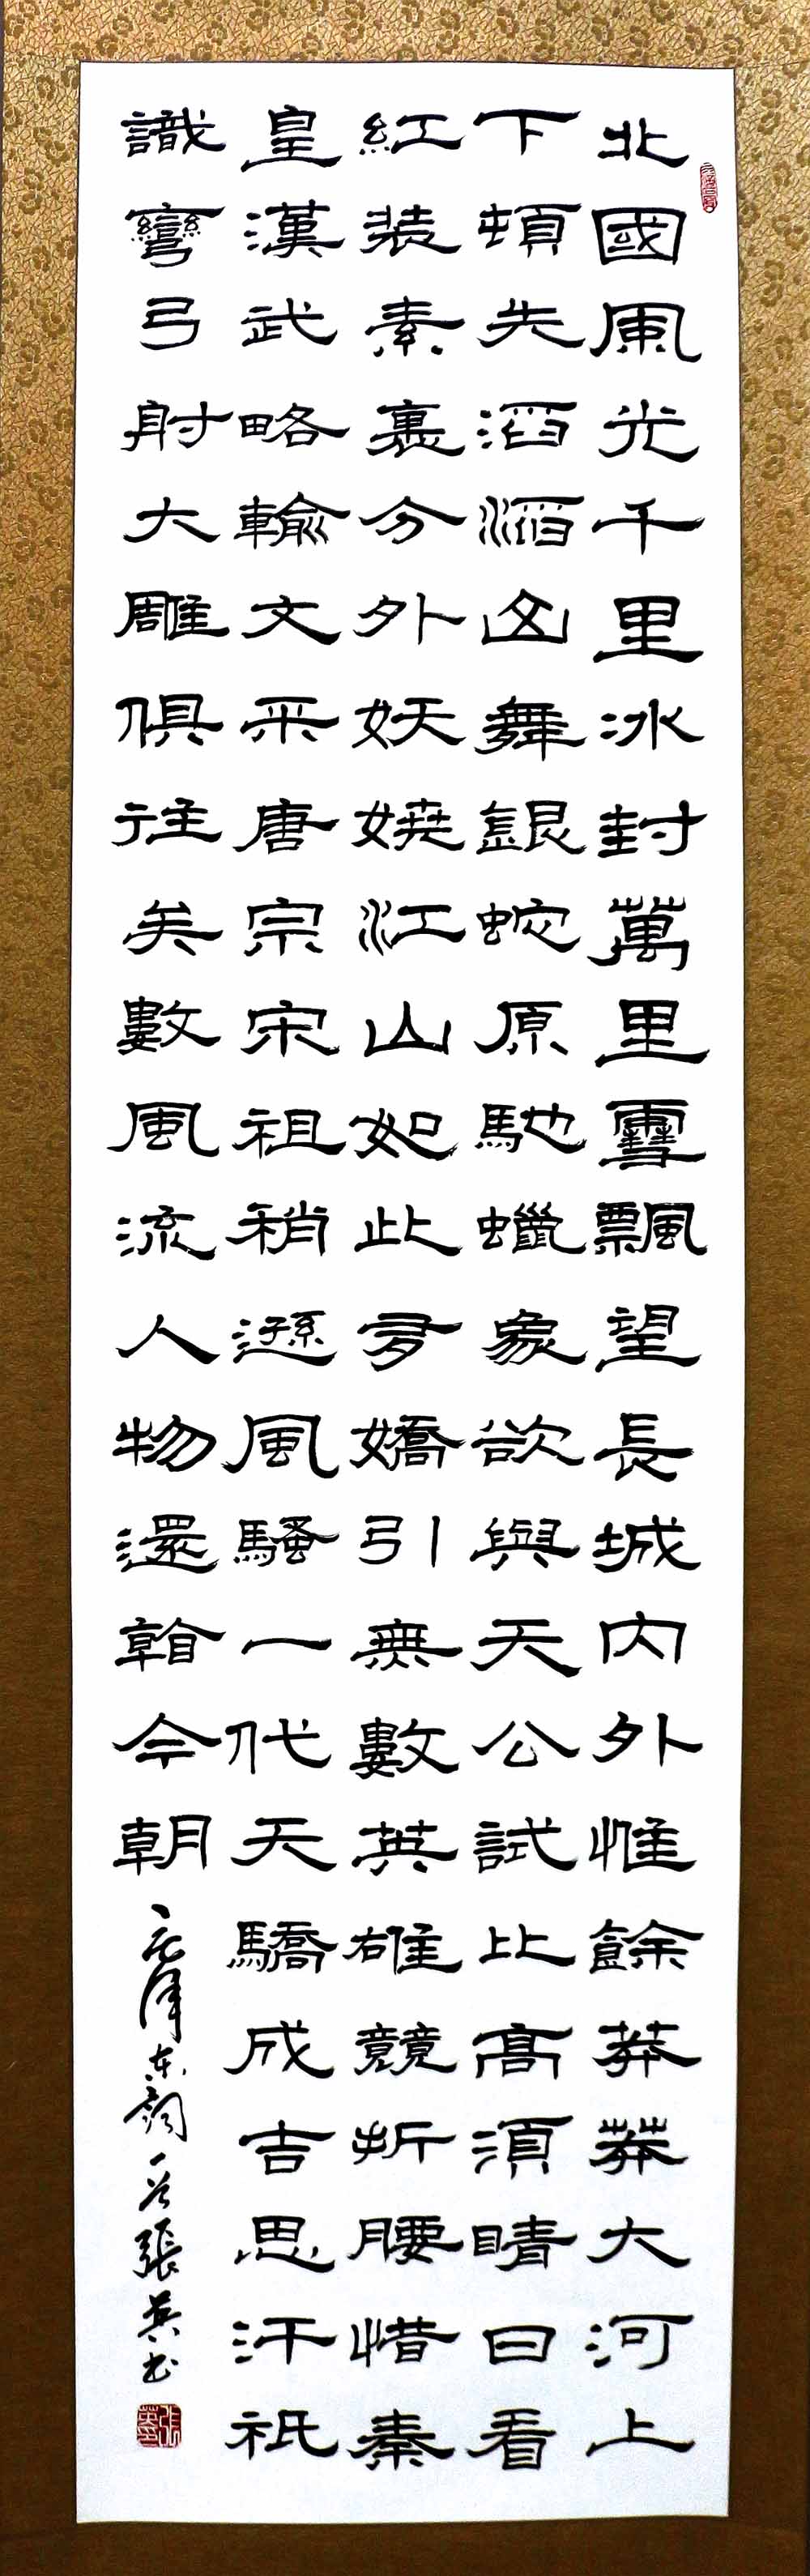 北國風光千里冰封萬里雪飄望長城內外惟餘莽莽大河上
下頓失滔滔山舞銀蛇原馳蠟象欲與天公試比高須晴日看
紅装素裹分外妖嬈江山如此多嬌引無數英雄競折腰惜秦
皇漢武略輸文采唐宗宋祖稍遜風騷一代天驕成吉思汗祇
識彎弓射大雕俱往矣數風流人物還看今朝 毛澤東詞一首張英书